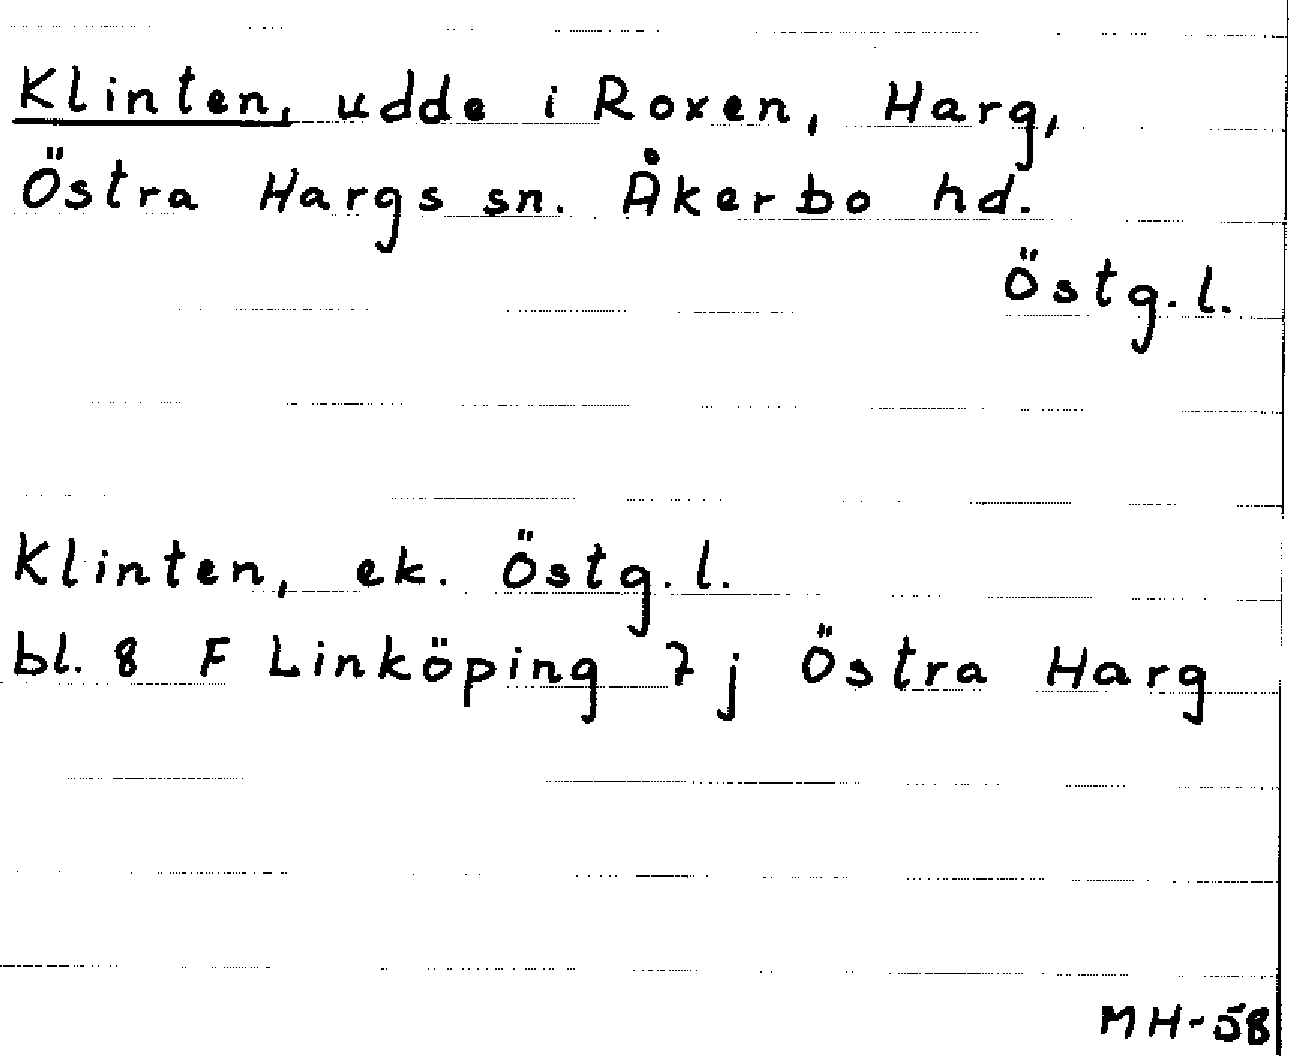 Klinten, udde i Roxen, Harg,
Östra Hargs sn. Åkerbo hd.
Östg. l.
Klinten, ek. Östg. l.
bl. 8 F Linköping 7 j Östra Harg
MH-58